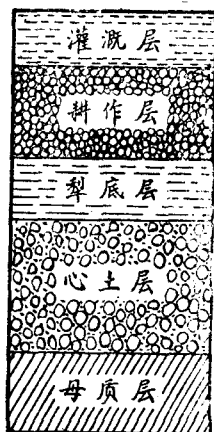 灌溉层
耕作层
犁底层
心土层
母质层